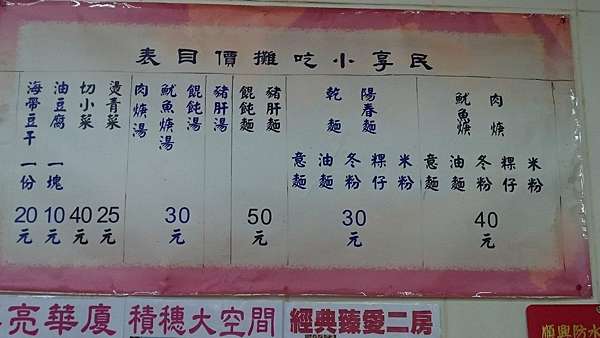 民享小吃攤價目表
肉焿
魷魚焿
米粉
粿仔
冬粉
油麵
意麵
40元
陽春麵
乾麵
米粉
粿仔
冬粉
油麵
意麵
30元
豬肝麵
餛飩麵
50元
豬肝湯
餛飩湯
魷魚焿湯
肉焿湯
30元
燙青菜 25元
切小菜 40元
油豆腐 一塊 10元
海帶豆干 一份 20元
亮華廈
積穗大空間
經典臻愛二房
順興防水